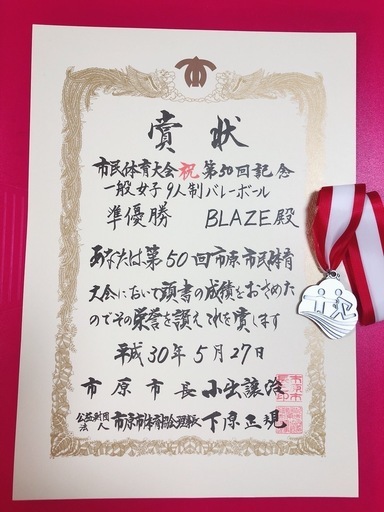 賞状
市民体育大会 祝 第50回記念
一般女子9人制バレーボール
準優勝 BLAZE殿
あなたは第50回市原市民体育
大会において頭書の成績をおさめた
のでその栄誉を讃えこれを賞します
平成30年5月27日
市原市長 小出譲治
公益財団法人 市原市体育協会理事長 下原正規